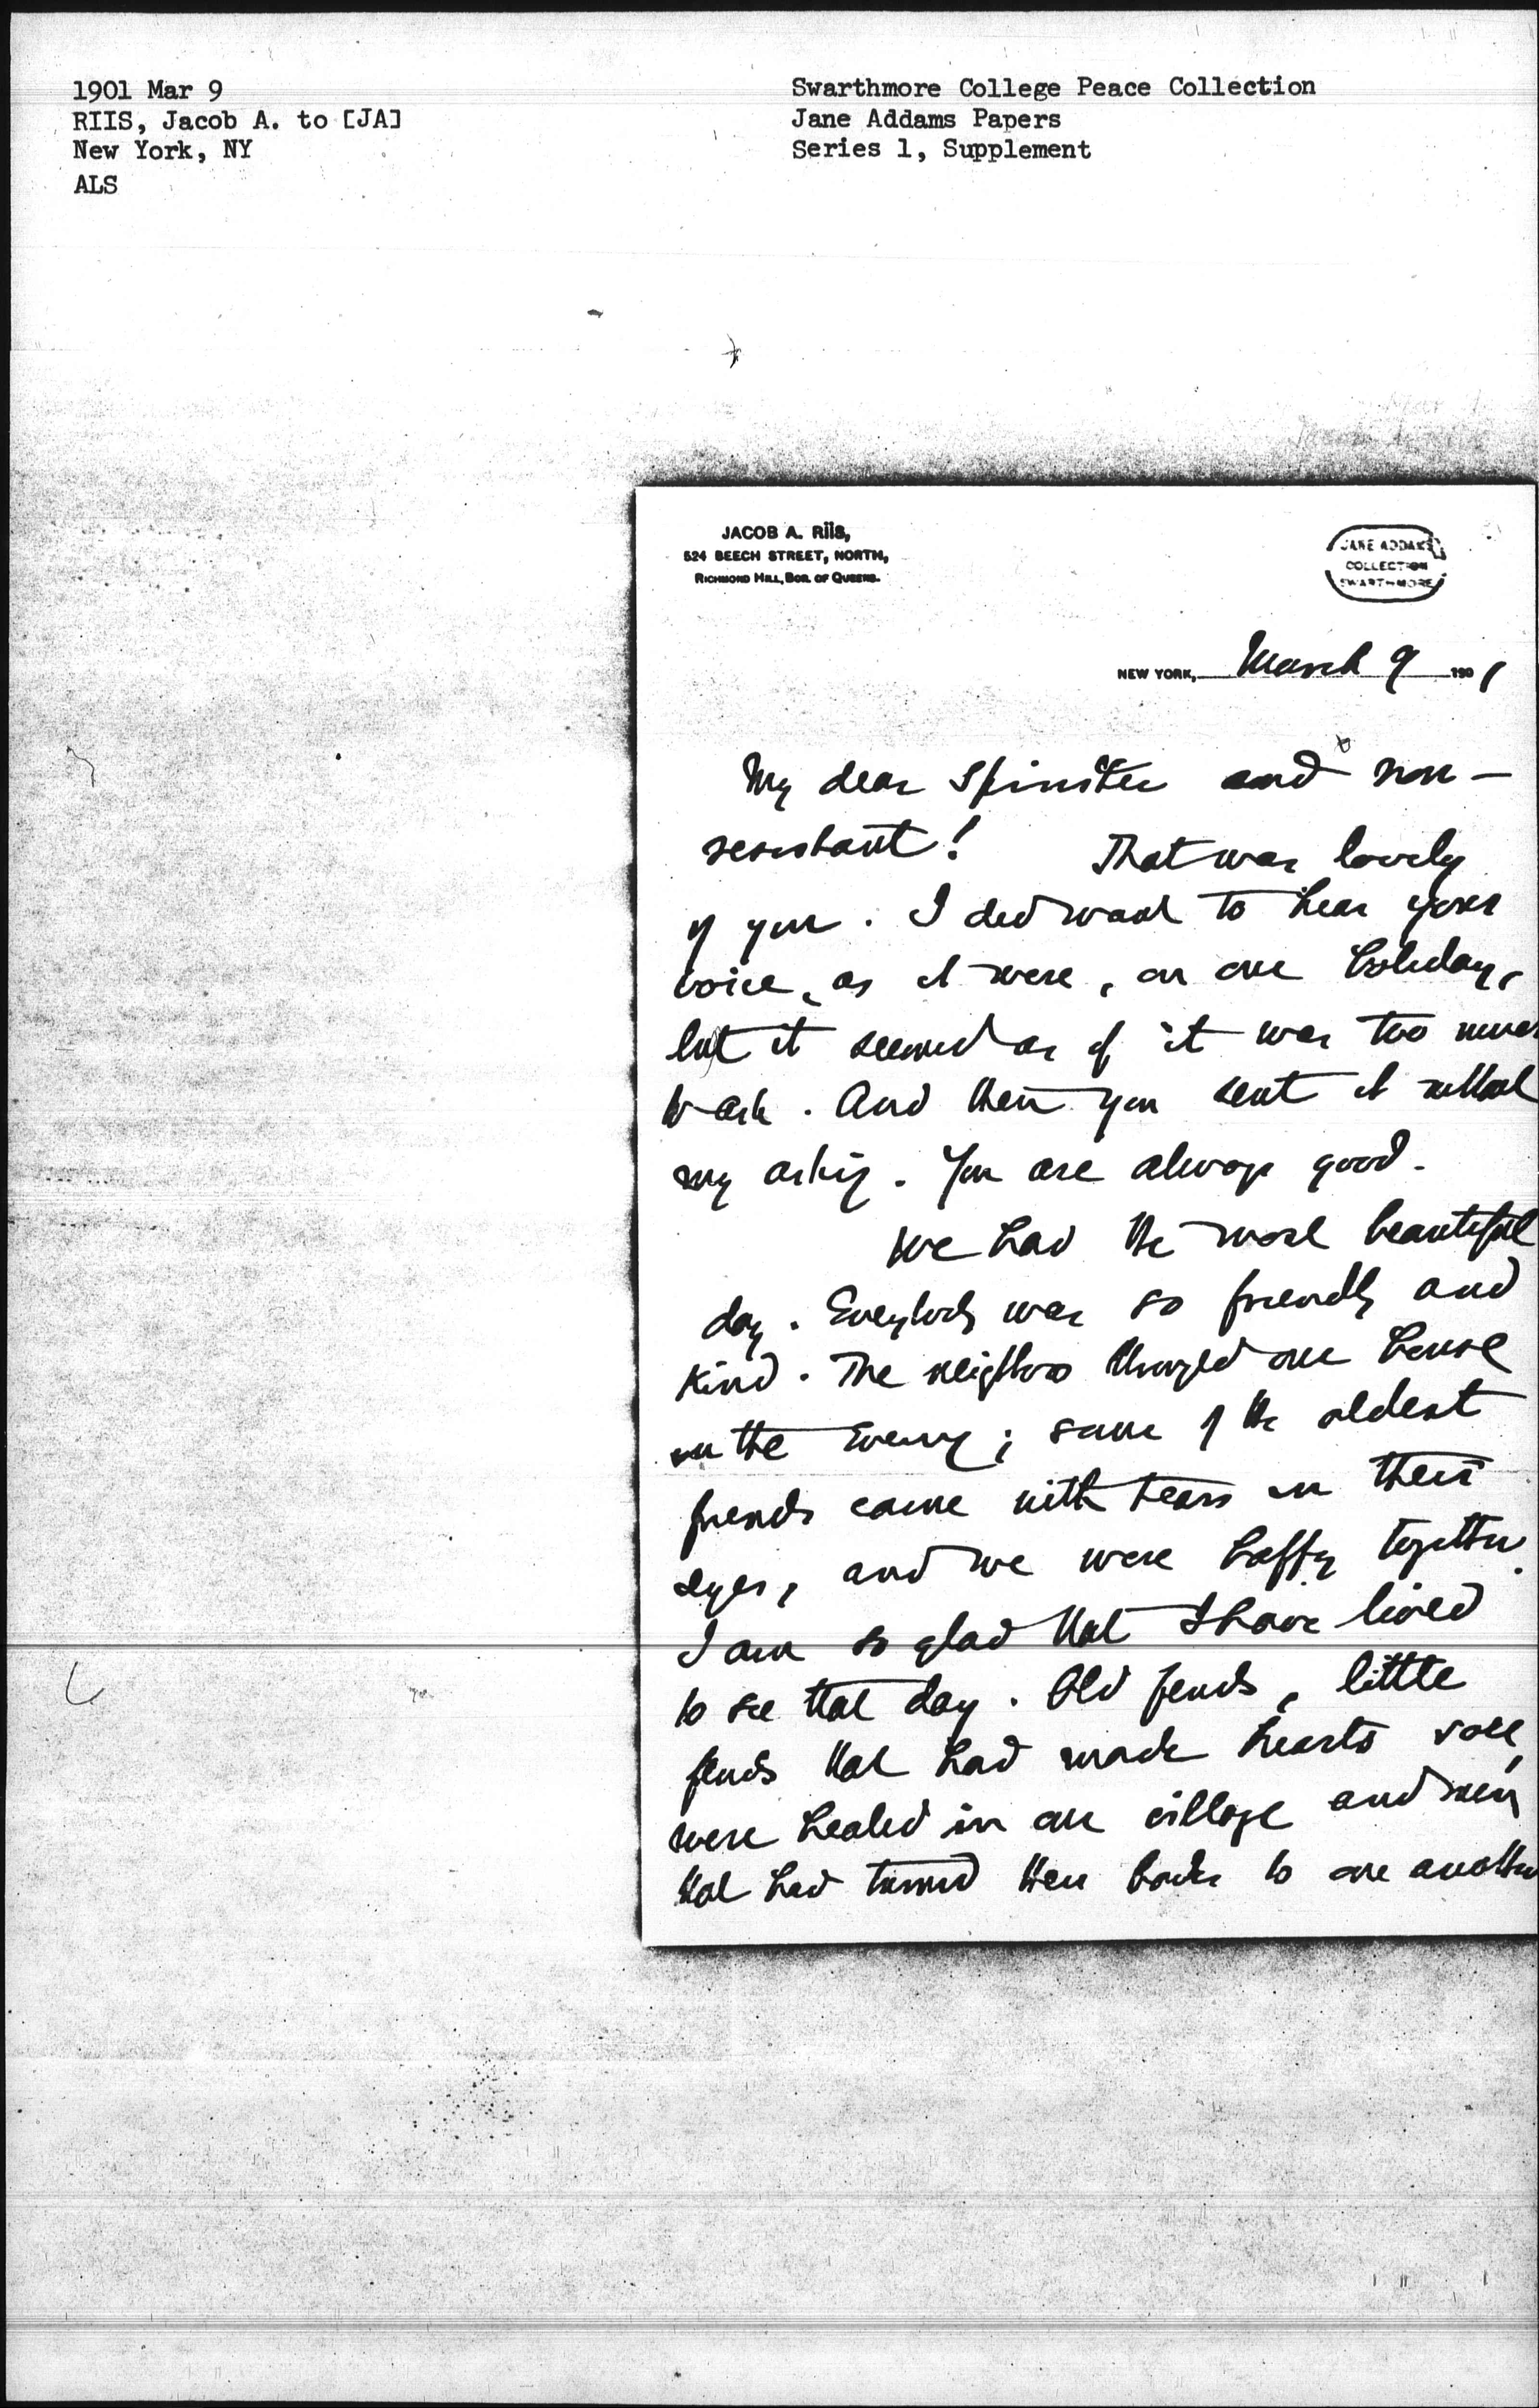 1901 Mar 9
RIIS, Jacob A. to [JA]
New York, NY
ALS
Swarthmore College Peace Collection
Jane Addams Papers
Series 1, Supplement
JACOB A. RiiS,
524 BEECH STREET, NORTH,
RICHMOND HILL, BOR. OF QUEENS.
JANE ADDAMS
COLLECTION
SWARTHMORE
NEW YORK, March 9 1901
My dear Spinster and non-
resistant! That was lovely
of you. I did want to hear your
voice, as it were, on our holiday,
but it seemed as if it was too much
to ask. And then you sent it without
my asking. You are always good.
We had the most beautiful
day. Everybody was so friendly and
kind. The neighbors thronged our house
in the evening; some of the oldest
friends came with tears in their
eyes, and we were happy together.
I am so glad that I have lived
to see that day. Old feuds, little
feuds that had made hearts sore,
were healed in our village and men
that had turned their backs to one another